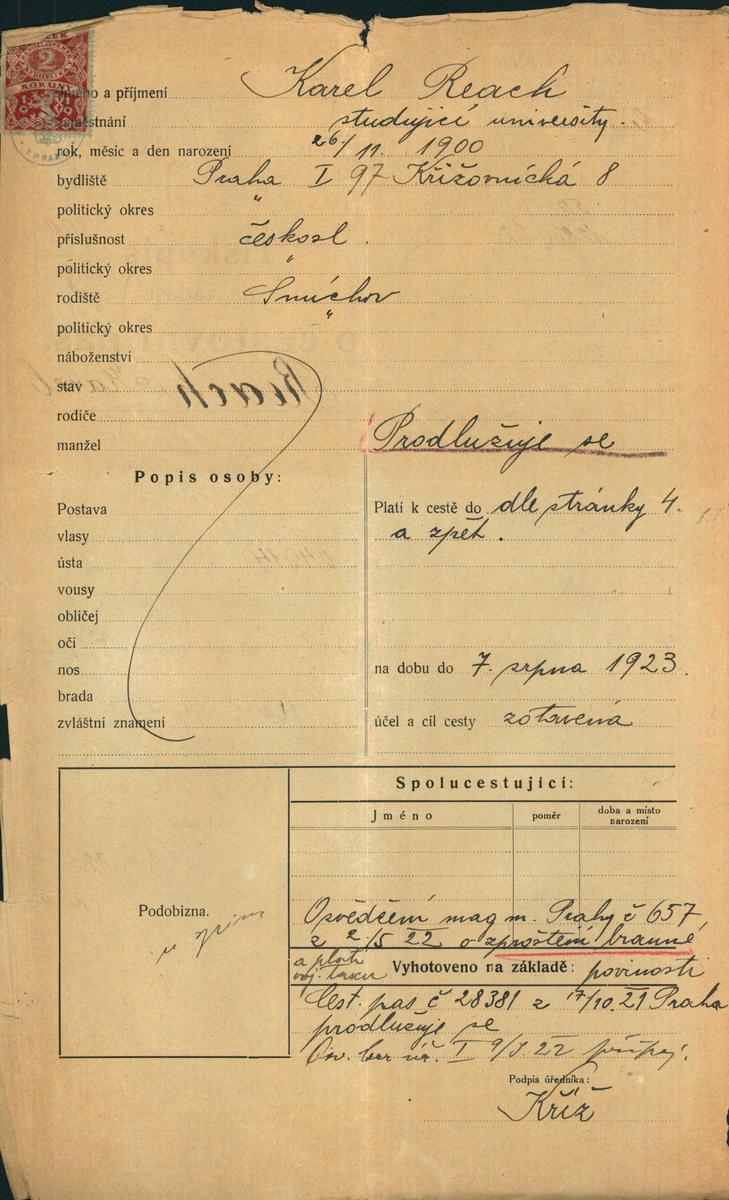 2
KORUNY
Jméno a příjmení Karel Reach
zaměstnání studující university.
rok, měsíc a den narození 26/11. 1900
bydliště Praha I 97 Křižovnická 8
politický okres "
příslušnost českosl.
politický okres "
rodiště Smíchov
politický okres "
náboženství
stav
rodiče
manžel
Prodlužuje se
Popis osoby:
Postava
vlasy
ústa
vousy
obličej
oči
nos
brada
zvláštní znamení
Platí k cestě do dle stránky 4.
a zpět.
na dobu do 7. srpna 1923.
účel a cíl cesty zotavená
Spolucestující:
Jméno poměr doba a místo narození
Podobizna.
Osvědčení mag m. Prahy č 657
z 2/5 22 o zproštění branné
a platu voj. taxu Vyhotoveno na základě: povinosti
Cest. pas č 28381 z 17/10.21 Praha
prodlužuje se
I 9/5.22 připoj.
Podpis úředníka:
Kříž